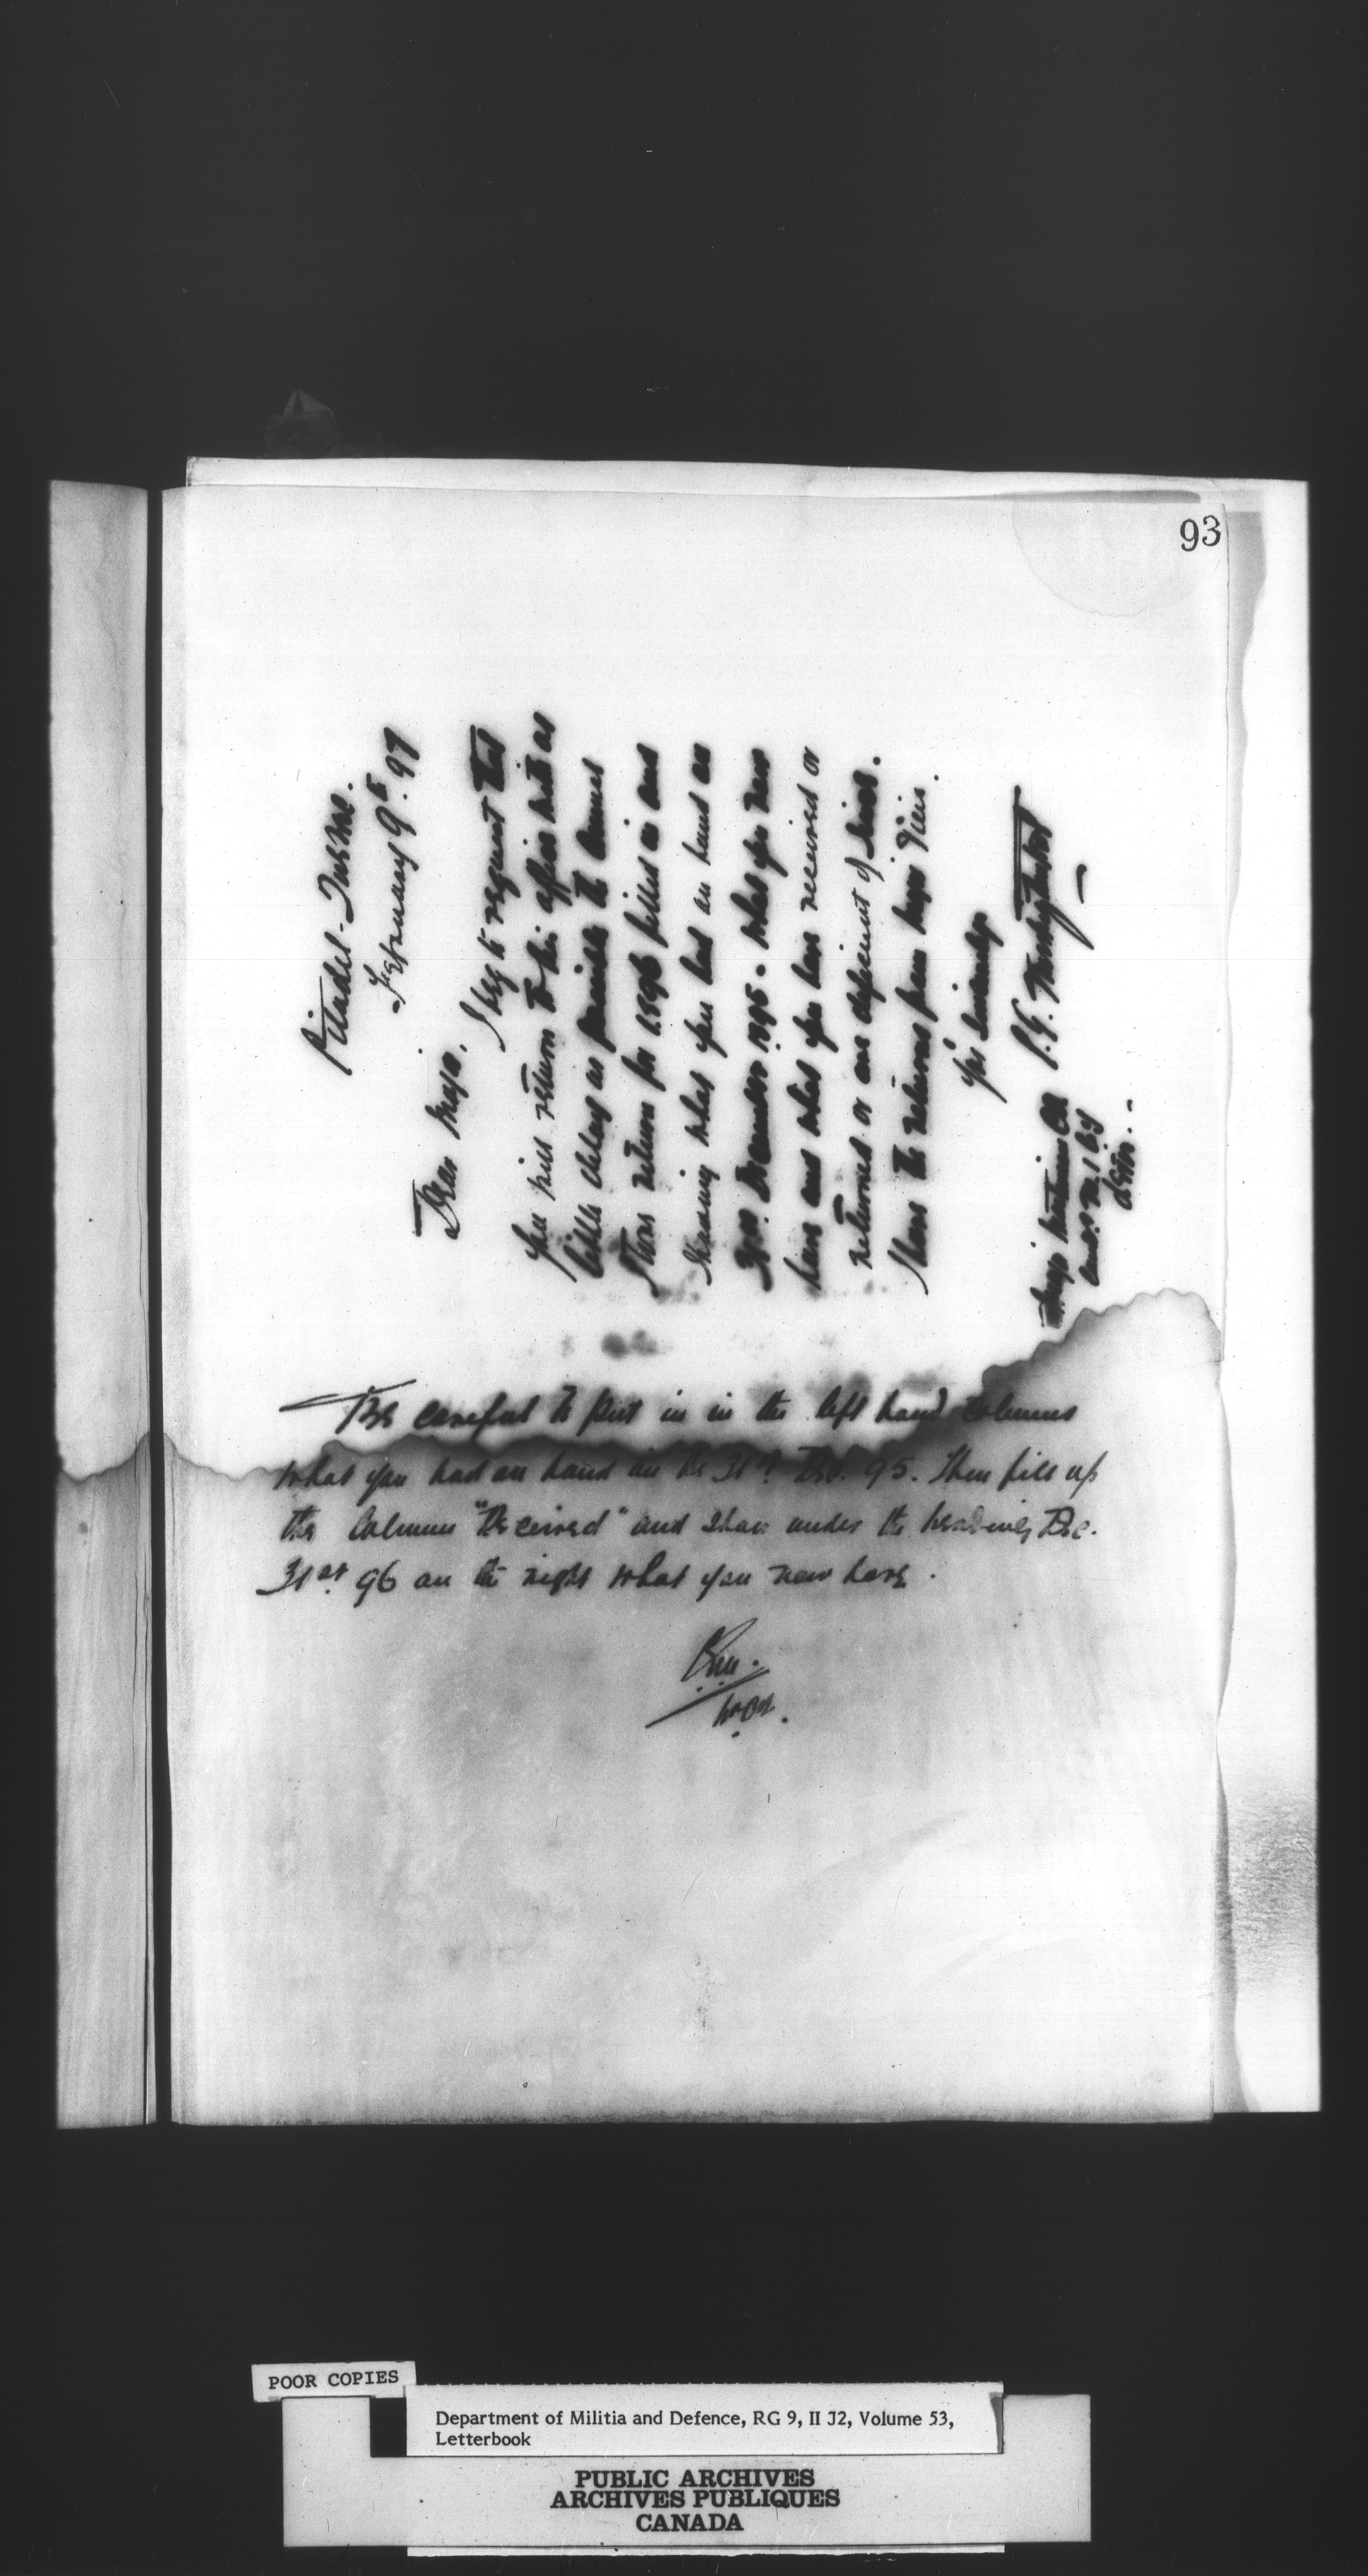 93
Citadel - Quebec.
February 9th. 97
Dear Major,
I beg to request that
you will return to this office with as
little delay as possible the Annual
Stores return for 1896 filled in and
showing what you had on hand on
31st. December 1895 - what you now
have and what you have received or
returned or are deficient of since.
Stores the returned from
Yrs Sincerely
Major
Be careful to put in in the left hand columns
what you had on hand on the 31st. Dec. 95. Then fill up
the Column "Received" and show under the heading Dec.
31st. 96 on the right what you now have.
POOR COPIES
Department of Militia and Defence, RG 9, II J2, Volume 53,
Letterbook
PUBLIC ARCHIVES
ARCHIVES PUBLIQUES
CANADA